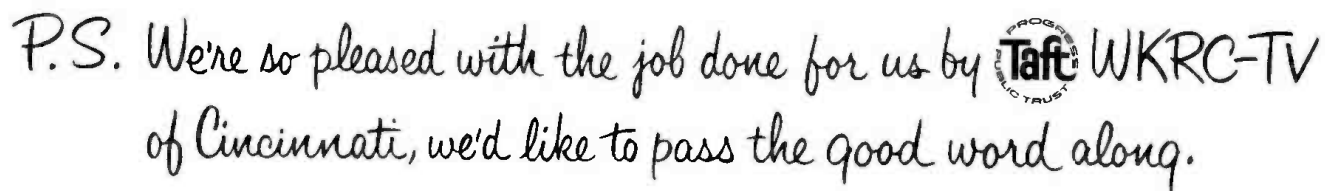 P.S. We're so pleased with the job done for us by Taft PROGRESS PUBLIC TRUST WKRC-TV
of Cincinnati, we'd like to pass the good word along.